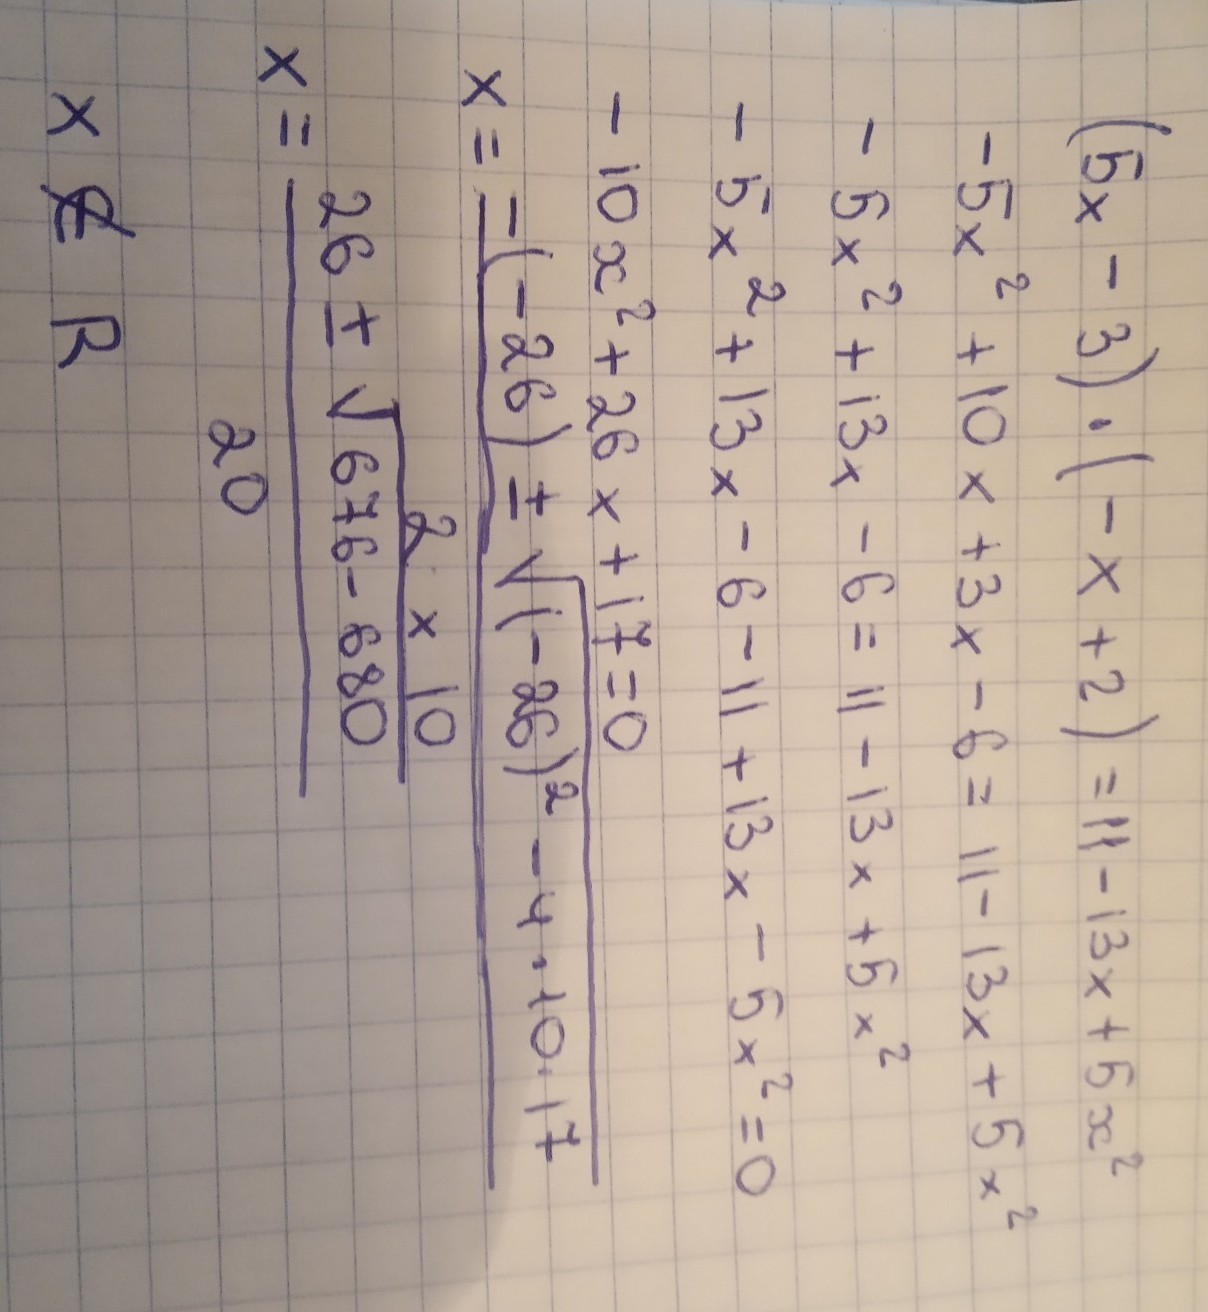 (5x - 3) · (-x + 2) = 11 - 13x + 5x²
-5x² + 10x + 3x - 6 = 11 - 13x + 5x²
-5x² + 13x - 6 = 11 - 13x + 5x²
-5x² + 13x - 6 - 11 + 13x - 5x² = 0
-10x² + 26x + 17 = 0
x = -(-26) ± √(-26)² - 4 · 10 · 17
2 x 10
x = 26 ± √676 - 680
20
x ∉ R